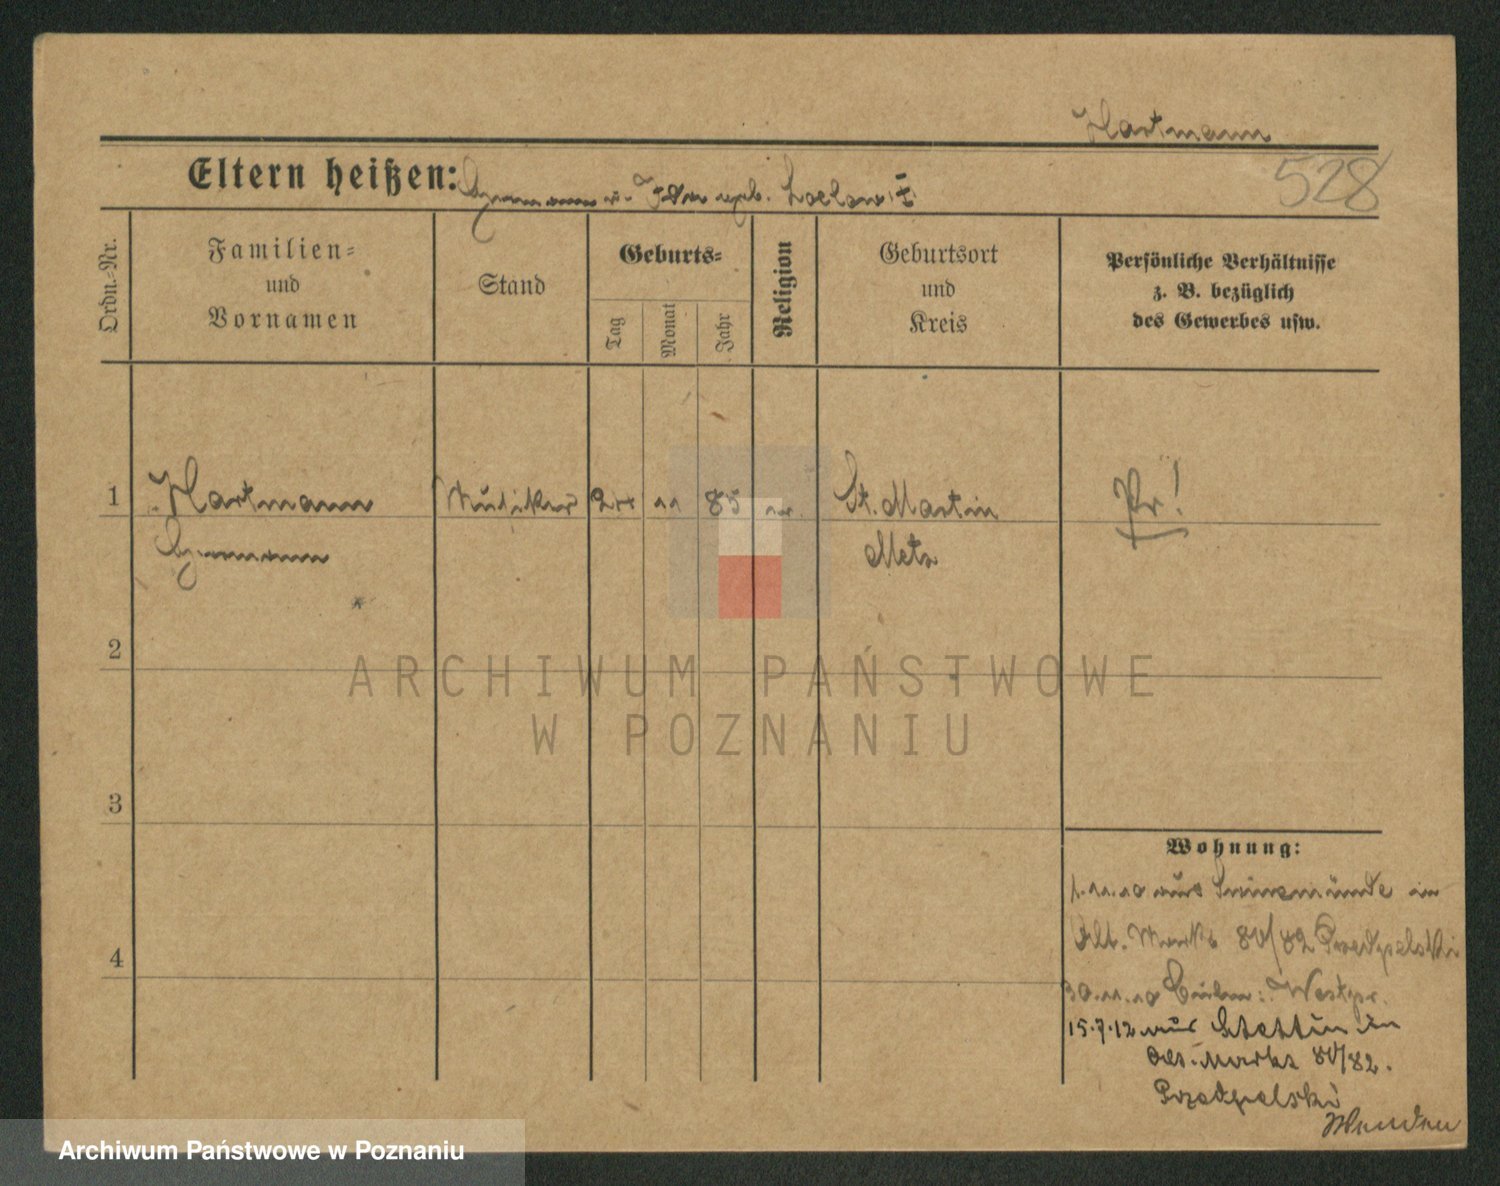 Hartmann
528
Eltern heißen: Hermann u. geb.
Ordn.-Nr.
Familien-
und
Vornamen
Stand
Geburts-
Tag
Monat
Jahr
Religion
Geburtsort
und
Kreis
Persönliche Verhältnisse
z. B. bezüglich
des Gewerbes usw.
1 Hartmann Musiker 11 85 St. Martin Pr!
Hermann Metz
2
3
4
Wohnung:
1.11.10 aus Swinemünde in
Alt. Markt 80/82 Przedpelski
30.11.10 Culm: Westpr.
15.7.12 aus Stettin in
Alt. Markt 80/82.
Przedpelski
ARCHIWUM PAŃSTWOWE
W POZNANIU
Archiwum Państwowe w Poznaniu